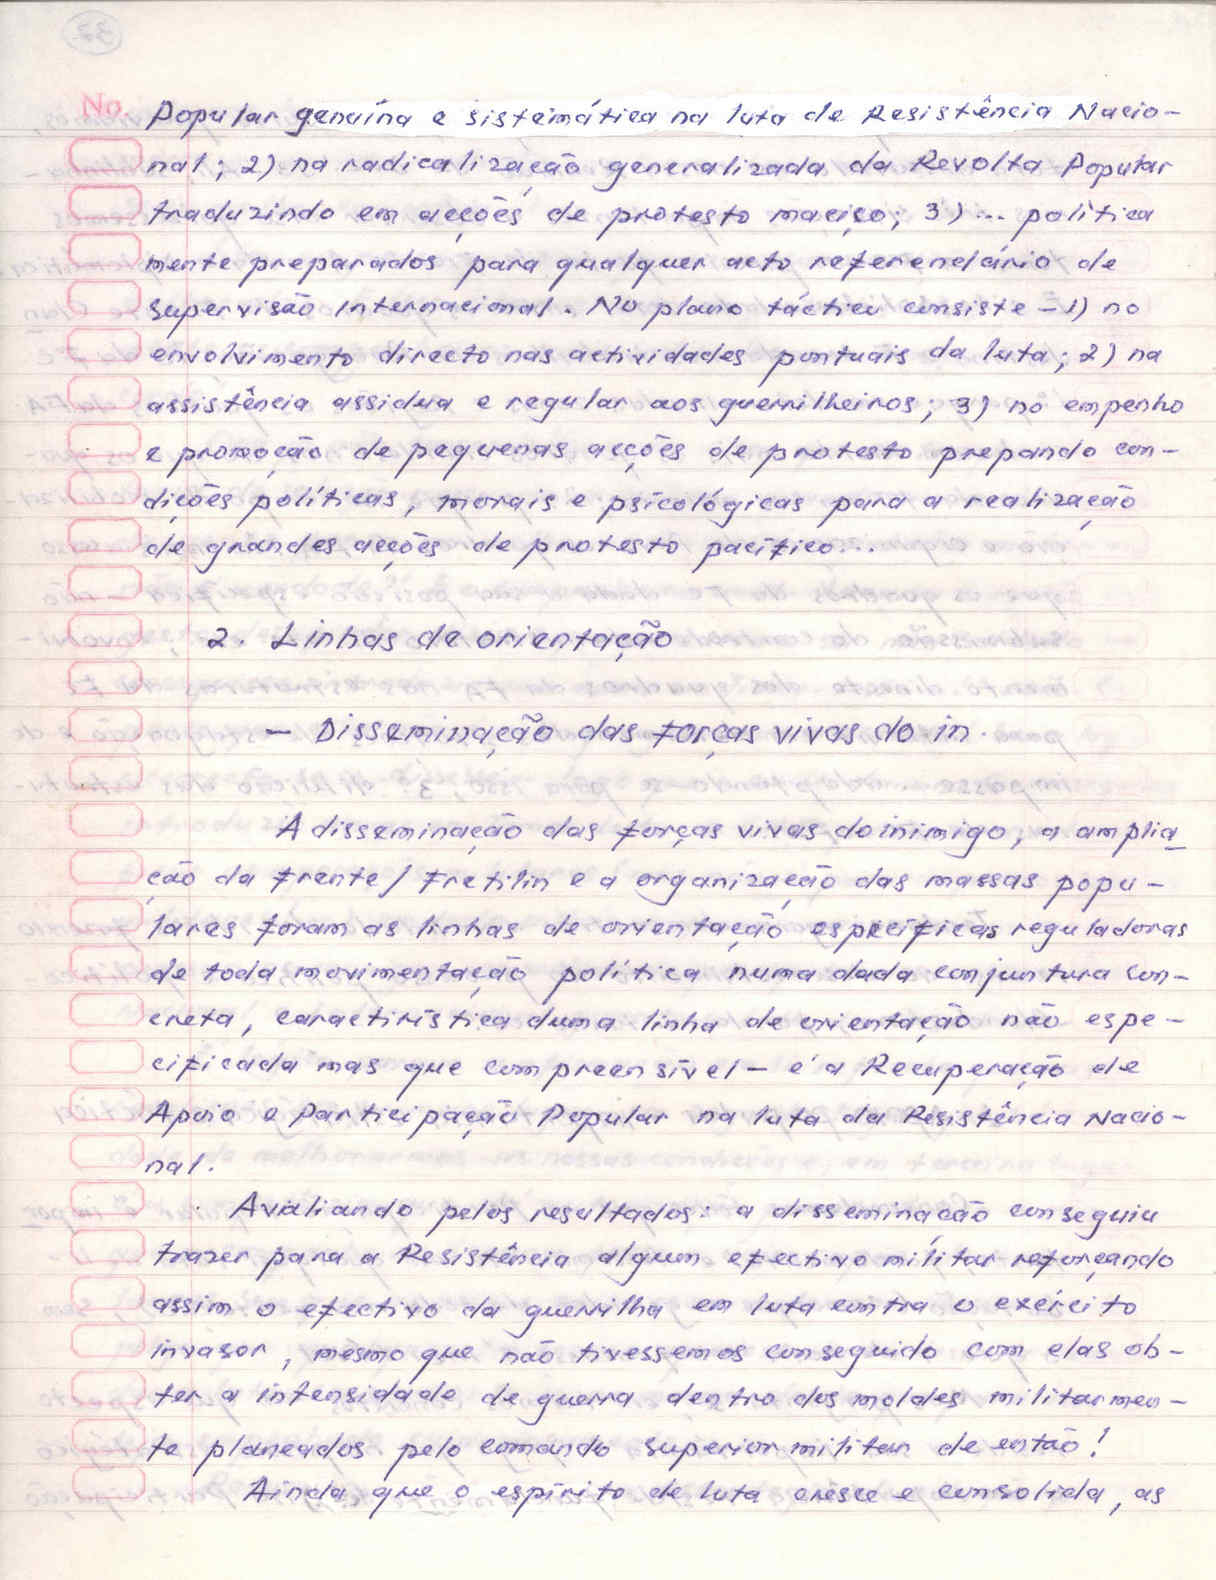 No. Popular genuína e sistemática na luta de Resistência Nacio-
nal; 2) na radicalização generalizada da Revolta Popular
traduzindo em acções de protesto maciço; 3) ... política
mente preparados para qualquer acto referendário de
supervisão Internacional. No plano táctico consiste - 1) no
envolvimento directo nas actividades pontuais da luta; 2) na
assistência assidua e regular aos guerrilheiros; 3) no empenho
e promoção de pequenas acções de protesto prepando con-
dições políticas, morais e psicológicas para a realização
de grandes acções de protesto pacífico...
2. Linhas de orientação
- Disseminação das forças vivas do in.
A disseminação das forças vivas do inimigo, a amplia
ção da Frente/Fretilin e a organização das massas popu-
lares foram as linhas de orientação específicas reguladoras
de toda movimentação política numa dada conjuntura con-
creta, caractirística duma linha de orientação não espe-
cificada mas que compreensível - é a Recuperação de
Apoio e Participação Popular na luta da Resistência Nacio-
nal.
Avaliando pelos resultados: a disseminação conseguiu
trazer para a Resistência algum efectivo mílitar reforçando
assim o efectivo da guerrilha em luta contra o exército
invasor, mesmo que não tivessemos conseguido com elas ob-
ter a intensidade de guerra dentro dos moldes militarmen-
te planeados pelo comando superior militar de então!
Ainda que o espírito de luta cresce e consolida, as